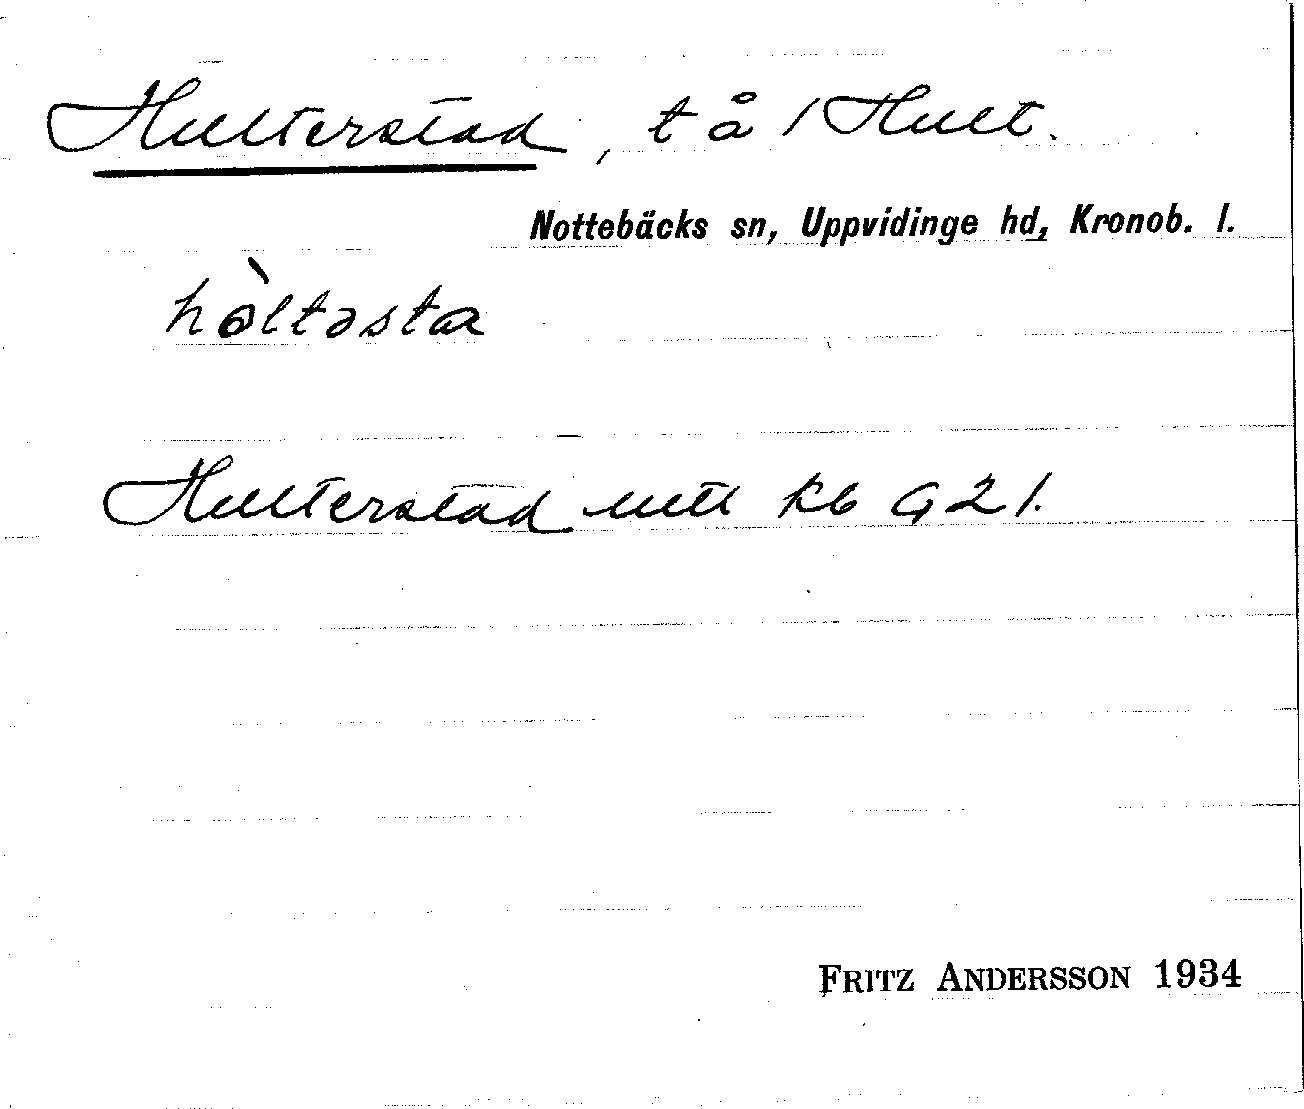 Hulterstad, t å 1 Hult.
Nottebäcks sn, Uppvidinge hd, Kronob. l.
hòltəsta
Hulterstad uttl kb G 21.
FRITZ ANDERSSON 1934